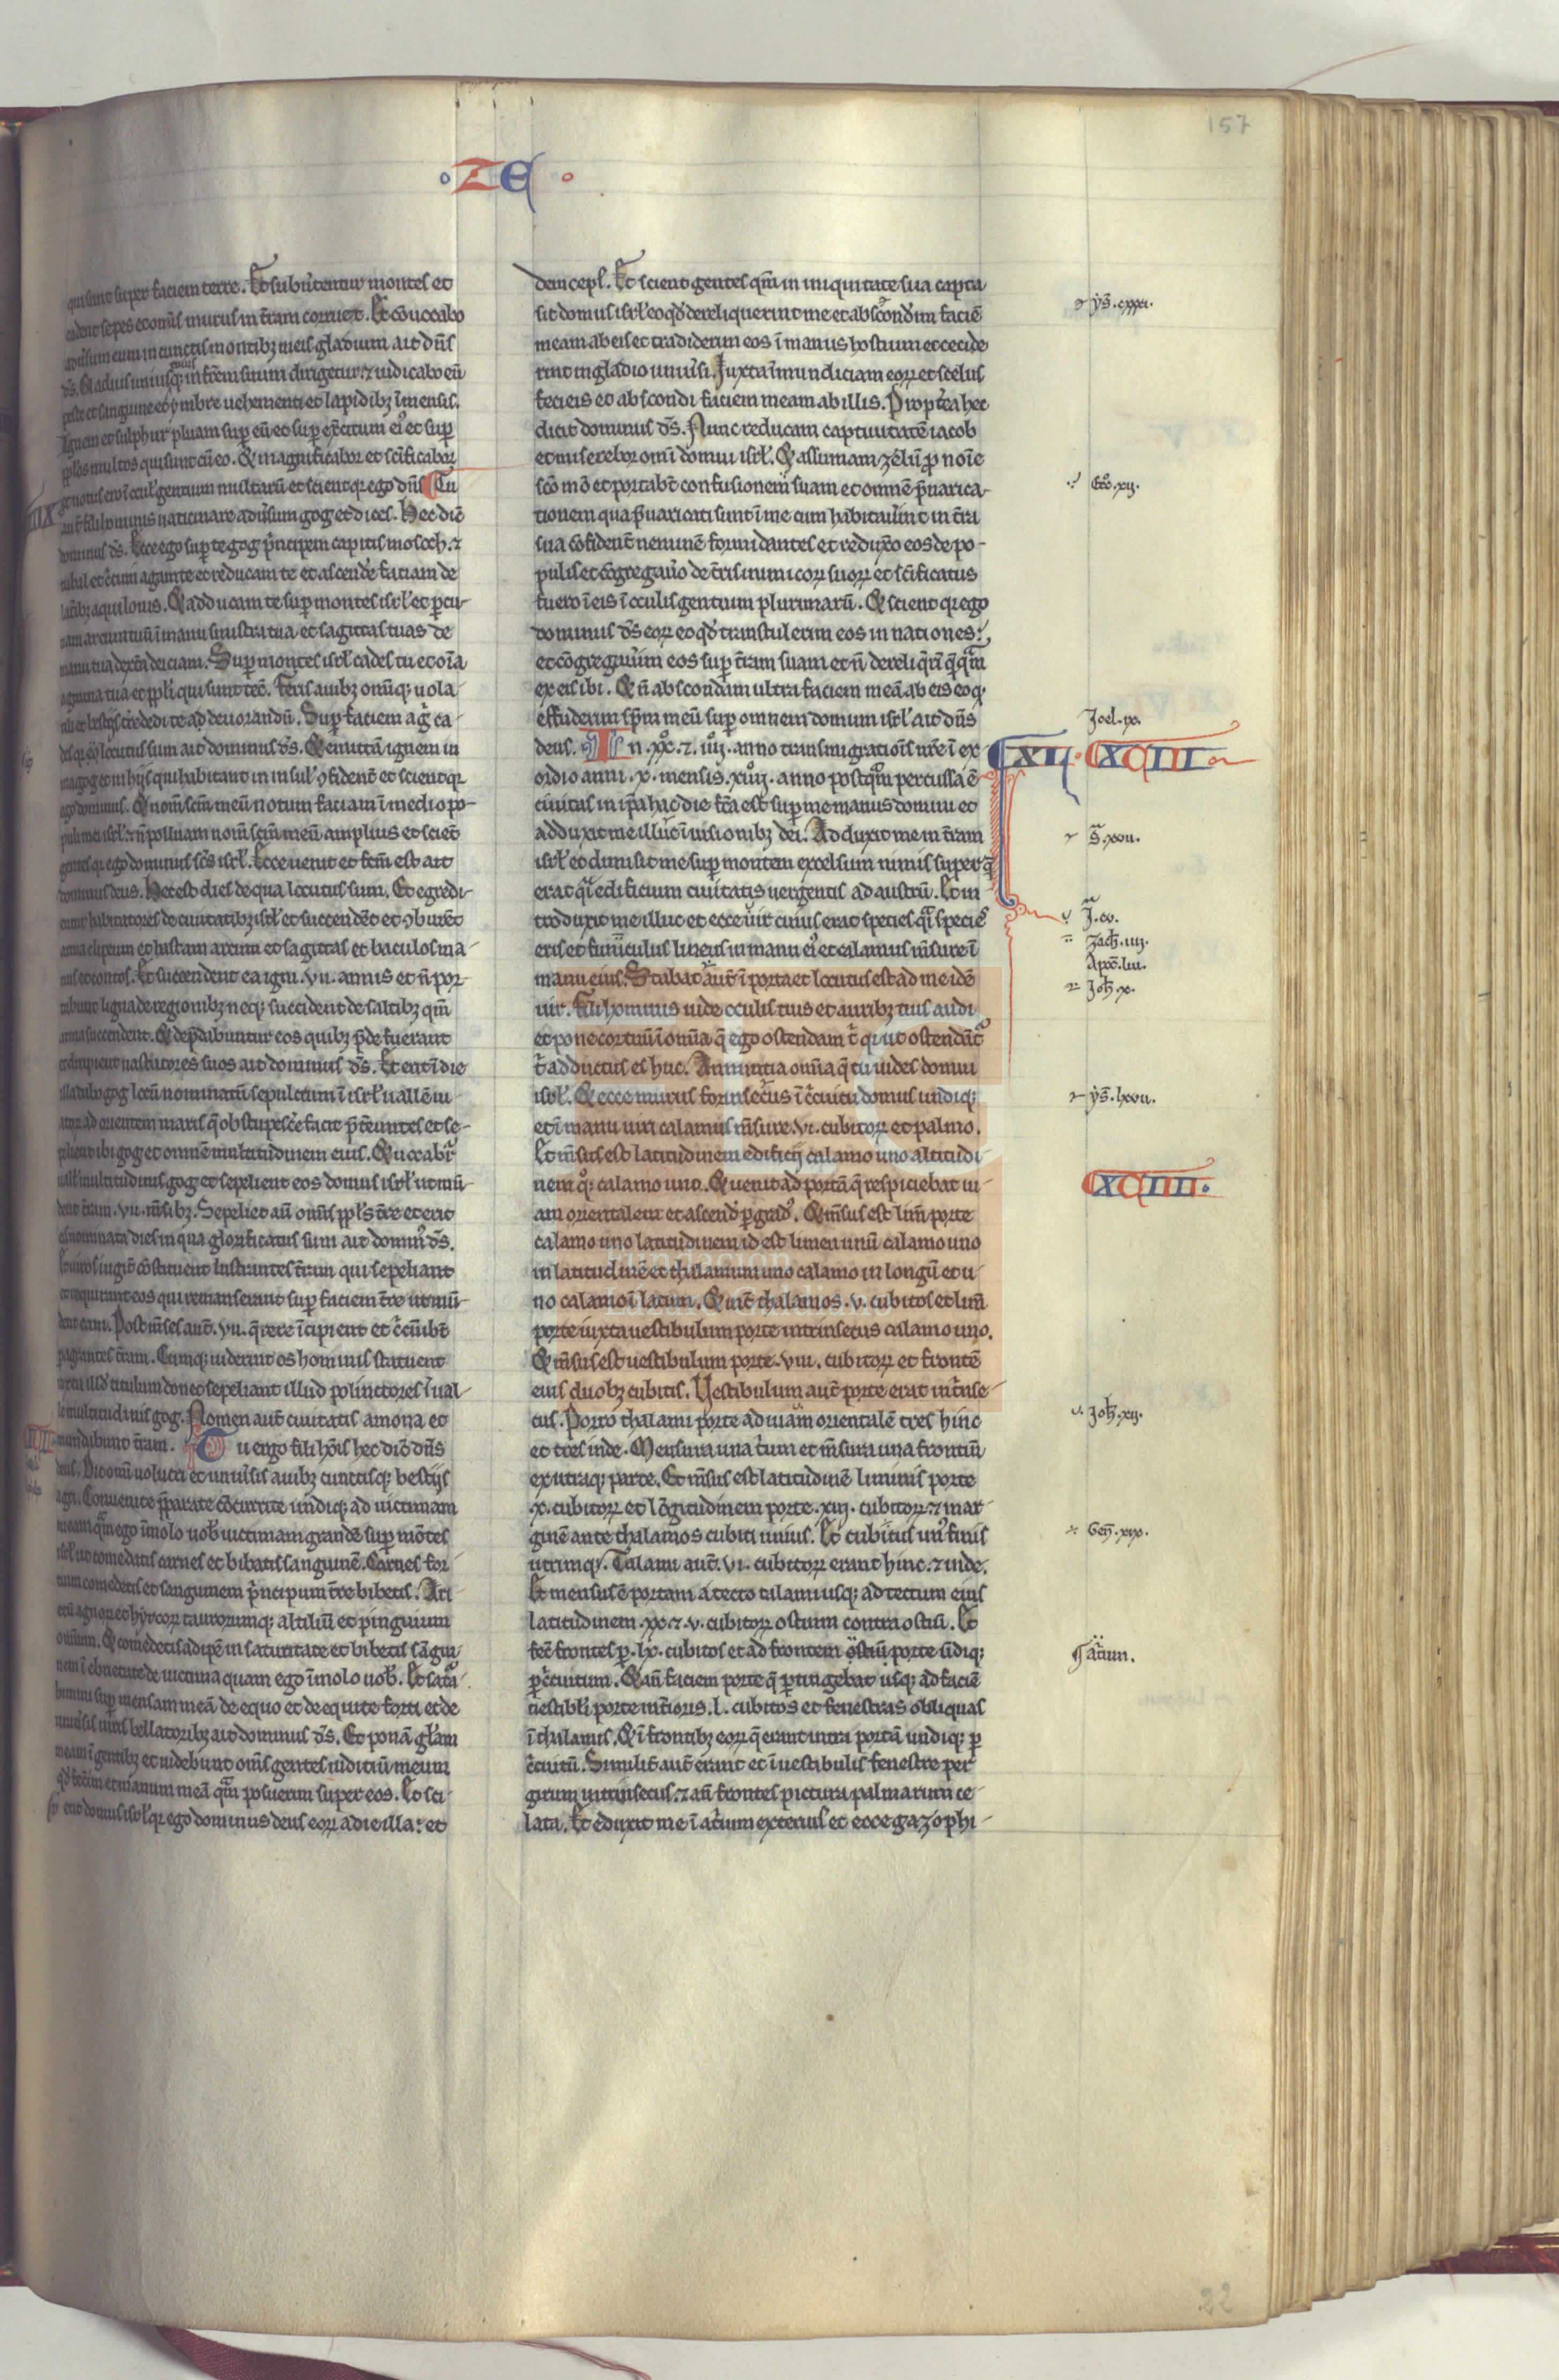 157
· ZE ·
qui sunt super faciem terre. Et subu̾tentur montes et
cadent sepes ⁊ om̃is murus in t̃ram corruet. Et c̃ouocabo
adũsum eum in cunctis montibꝫ meis gladium ait dñs
d̃s. Gladius uniusqꝫ in fr̃em suum dirigetur ⁊ iudicabo eũ
peste et sanguine et ymbre uehementi et lapidibꝫ ĩmensis.
Ignem et sulphur pluam sup̱ eũ et sup̱ ex̃citum ei᾽ et sup̱
pp̃los multos qui sunt cũ eo. Et magnificabor et sc̃ificabor
et notus ero ĩ occul̃ gentium multarũ et scient q̨ ego dñs Tu
aut̃ fili hominis uaticinare adũsum gog et dices. Hec dic̃
dominus d̃s. Ecce ego sup̱ te gog p̃ncipem capitis mosoch ⁊
tubal et c̃cum agam te et reducam te et ascend̾e faciam de
lat̾ibꝫ aquilonis. Et adducam te sup̱ montes isrl̃ et p̱cu-
tiam arcum tuũ ĩ manu sinistra tua et sagittas tuas de
manu tua dext̾a deiciam. Sup̱ montes isrl̃ cades tu et oĩa
agmina tua et pp̃li qui sunt tec̃. Feris auibꝫ omĩqꝫ uola
tili et bestijs t̾re dedi te ad deuorandũ. Sup̱ faciem ag̃ ca-
des q̨ ego locutus sum ait dominus d̃s. Et emittã ignem in
magog et in hijs qui habitant in insul̃ ꝯfident̃ et scient q̨
ego dominus. Et nom̃ sc̃m meũ notum faciam ĩ medio po-
puli mei isrl̃ ⁊ ñ polluam nom̃ sc̃m meũ amplius et scient
gentes q̨ ego dominus sc̃s isrl̃. Ecce uenit et fc̃m est ait
dominus deus. Hec est dies de qua locutus sum. Et egredi-
entur habitatores de ciuitatibꝫ isrl̃ et succendẽt et ꝯburẽt
arma clipeum et hastam arcum et sagittas et baculos ma-
nus et contos. Et succendent ea igni .vii. annis et ñ por-
tabunt ligna de regionibꝫ neqꝫ succident de saltibꝫ qm̃
arma succendent. Et dep̃dabuntur eos quibꝫ p̃de fuerant
et diripient uastatores suos ait dominus d̃s. Et erit ĩ die
illa dabo gog locũ nominatũ sepulcrum ĩ isrl̃ uallẽ ui-
ator̃ ad orientem maris q̃ obstupesc̾e facit p̃t̾euntes et se-
pelient ibi gog et omnẽ multitudinem eius. Et uocabit̃
uall̃ multitudinis gog et sepelient eos domus isrl̃ ut mũ-
dent t̾ram .vii. m̃sibꝫ. Sepeliet aũ om̃is pp̃ls t̾re et erit
eis nominata dies in qua glorificatus sum ait domin᾽ d̃s.
Et uiros iugit̾ c̃ostituent lustrantes t̾ram qui sepeliant
et requirant eos qui remanserant sup̱ faciem t̾re ut mũ-
dent eam. Post m̃ses aut̃ .vii. q̃rere ĩcipient et c̃cuibt̃
pagrantes t̾ram. Cumqꝫ uiderint os hominis statuent
iuxta illud titulum donec sepeliant illud polinctores ĩ ual-
le multitudinis gog. Nomen aut̃ ciuitatis amona et
mundabunt t̾ram. Tu ergo fili hõis hec dic̃ dñs
deus. Dic omĩ uolucri et uniũsis auibꝫ cunctisqꝫ bestijs
agri. Conuenite pp̃arate c̃ocurrite undiqꝫ ad uictimam
meam quã ego ĩmolo uob᾽ uictimam grandẽ sup̱ mõtes
isrl̃ ut comedatis carnes et bibatis sanguinẽ. Carnes for-
tium comedetis et sanguinem p̃ncipum t̾re bibetis. Ari-
etũ agnor̃ et hyrcoꝝ taurorumqꝫ altiliũ et pinguium
omium. Et comedetis adipẽ in saturitate et bibetis sãgui-
nem ĩ ebrietate de uictima quam ego ĩmolo uob᾽. Et sata-
bimini sup̱ mensam meã de equo et de equite forti et de
uniũsis uiris bellatoribꝫ ait dominus d̃s. Et ponã gl̃am
meam ĩ gentibꝫ et uidebunt om̃is gentes iudiciũ meum
qd̃ fec̾im et manum meã quã posuerim super eos. Et sci-
ent domus isrl̃ q̨ ego dominus deus eoꝝ a die illa: et
deincep̃s. Et scient gentes qm̃ in iniquitate sua capta
sit domus isrl̃ eo qd̃ dereliquerint me et absc̃ond̾im faciẽ
meam ab eis et tradiderim eos ĩ manus hostium et cecide-
rint in gladio uniũsi. Iuxta ĩmundiciam eoꝝ et scelus
feci eis et abscondi faciem meam ab illis. Propt̾ea hec
dicit dominus d̃s. Nunc reducam captiuitatẽ iacob
et miserebor omĩ domui isrl̃. Et assumam zelũ p̱ noĩe
sc̃o m̃o et portabt̃ confusionem suam et omnẽ p̃uarica-
tionem qua p̃uaricati sunt ĩ me cum habitaũint in t̾ra
sua c̃ofident̾ neminẽ formidantes et reduxo eos de po-
pulis et c̃ogregau̾o de t̾ris inimicoꝝ suoꝝ et sc̃ificatus
fuero ĩ eis ĩ occulis gentium plurimarũ. Et scient q̨ ego
dominus d̃s eoꝝ eo qd̃ transtulerim eos in nationes:
et c̃ogregau̾im eos sup̱ t̾ram suam et ñ dereliq̃ri q̃qm̃
ex eis ibi. Et ñ abscondam ultra faciem meã ab eis eo q̨
effuderim sp̃m meũ sup̱ omnem domum isrl̃ ait dñs
deus. In .xx. ⁊ .v. anno transmigratiõis nr̃e ĩ ex
ordio anni .x. mensis .xiiij. anno postq̃m percussa ẽ
ciuitas in ip̃a hac die fc̃a est sup̱ me manus domini et
adduxit me illuc ĩ uisionibꝫ dei. Adduxit me in t̾ram
isrl̃ et dimisit me sup̱ montem excelsum nimis super q̃
erat q̃i edificium ciuitatis uergentis ad austrũ. Et in
troduxit me illuc et ecce uir cuius erat species q̃i speciẽ
eris et funiculus lineus in manu ei᾽ et calamus m̃sure ĩ
manu eius. Stabat aut̃ ĩ porta et locutus est ad me idẽ
uir. Fili hominis uide occulis tuis et auribꝫ tuis audi
et pone cor tuũ ĩ omĩa q̃ ego ostendam t̾ q̨ ut ostendãt᾽
t̾ adductus es huc. Annuntia omĩa q̃ tu uides domui
isrl̃. Et ecce murus forinsecus ĩ c̃cuitu domus undiqꝫ
et ĩ manu uiri calamus m̃sure .vi. cubitoꝝ et palmo.
Et m̃sus est latitudinem edificij calamo uno altitudi-
nem q᾽ calamo uno. Et uenit ad portã q̃ respiciebat ui-
am orientalem et ascend̾ p̱ grad᾽. Et m̃sus est lim̃ porte
calamo uno latitudinem id est limen unũ calamo uno
in latitudinẽ et thalamum uno calamo in longũ et u-
no calamo ĩ latum. Et int̾ thalamos .v. cubitos et lim̃
porte iuxta uestibulum porte intrinsecus calamo uno.
Et m̃sus est uestibulum porte .viii. cubitoꝝ et frontẽ
eius duobꝫ cubitis. Uestibulum aut̃ porte erat int̾nse-
cus. Porro thalami porte ad uiam orientalẽ tres hinc
et tres inde. Mensura una trium et m̃sura una frontiũ
ex utraqꝫ parte. Et m̃sus est latitudinẽ liminis porte
.x. cubitoꝝ et lõgitudinem porte .xiij. cubitoꝝ ⁊ mar-
ginẽ ante thalamos cubiti unius. Et cubitus un᾽ finis
utrimq̨. Talami aut̃ .vi. cubitoꝝ erant hinc ⁊ inde.
Et mensus ẽ portam a tecto talami usqꝫ ad tectum eius
latitudinem .xx. ⁊ .v. cubitoꝝ ostium contra ostiũ. Et
fec̃ frontes p̱ .lx. cubitos et ad frontem ostiũ porte ũdiqꝫ
p̱ c̃cuitum. Et añ faciem porte q̃ p̱tingebat usqꝫ ad faciẽ
uestibl̃i porte int̾ioris .l. cubitos et fenestras obliquas
ĩ thalamis. Et ĩ frontibꝫ eoꝝ q̃ erant intra portã undiqꝫ p̱
c̃cuitũ. Similit̾ aut̃ erant et ĩ uestibulis fenestre per
girum intrinsecus ⁊ añ frontes pictura palmarum ce-
lata. Et eduxit me ĩ atrium exterius et ecce gazophi-
ys̃. cxxxi.
Ero. xij.
Joel. ix.
XL · XCIII
S̃. xxvi.
J. ev.
Zach̃. iiij.
Apoc̃. lui.
Joh̃. x.
ys̃. lxvii.
XCIIII.
Joh̃. xij.
Gen̾. xix.
atrium.
22